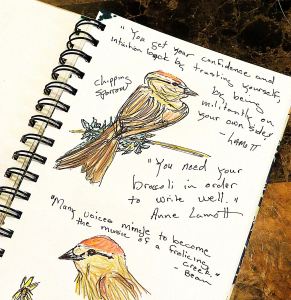 "You get your confidence and
intuition back by trusting yourself,
by being
militantly on
your own side."
-LAMOTT
chipping
sparrow
"You need your
brocoli in order
to write well."
Anne Lamott
"Many voices mingle to become
the music of a frolicing
creek"
-Bean